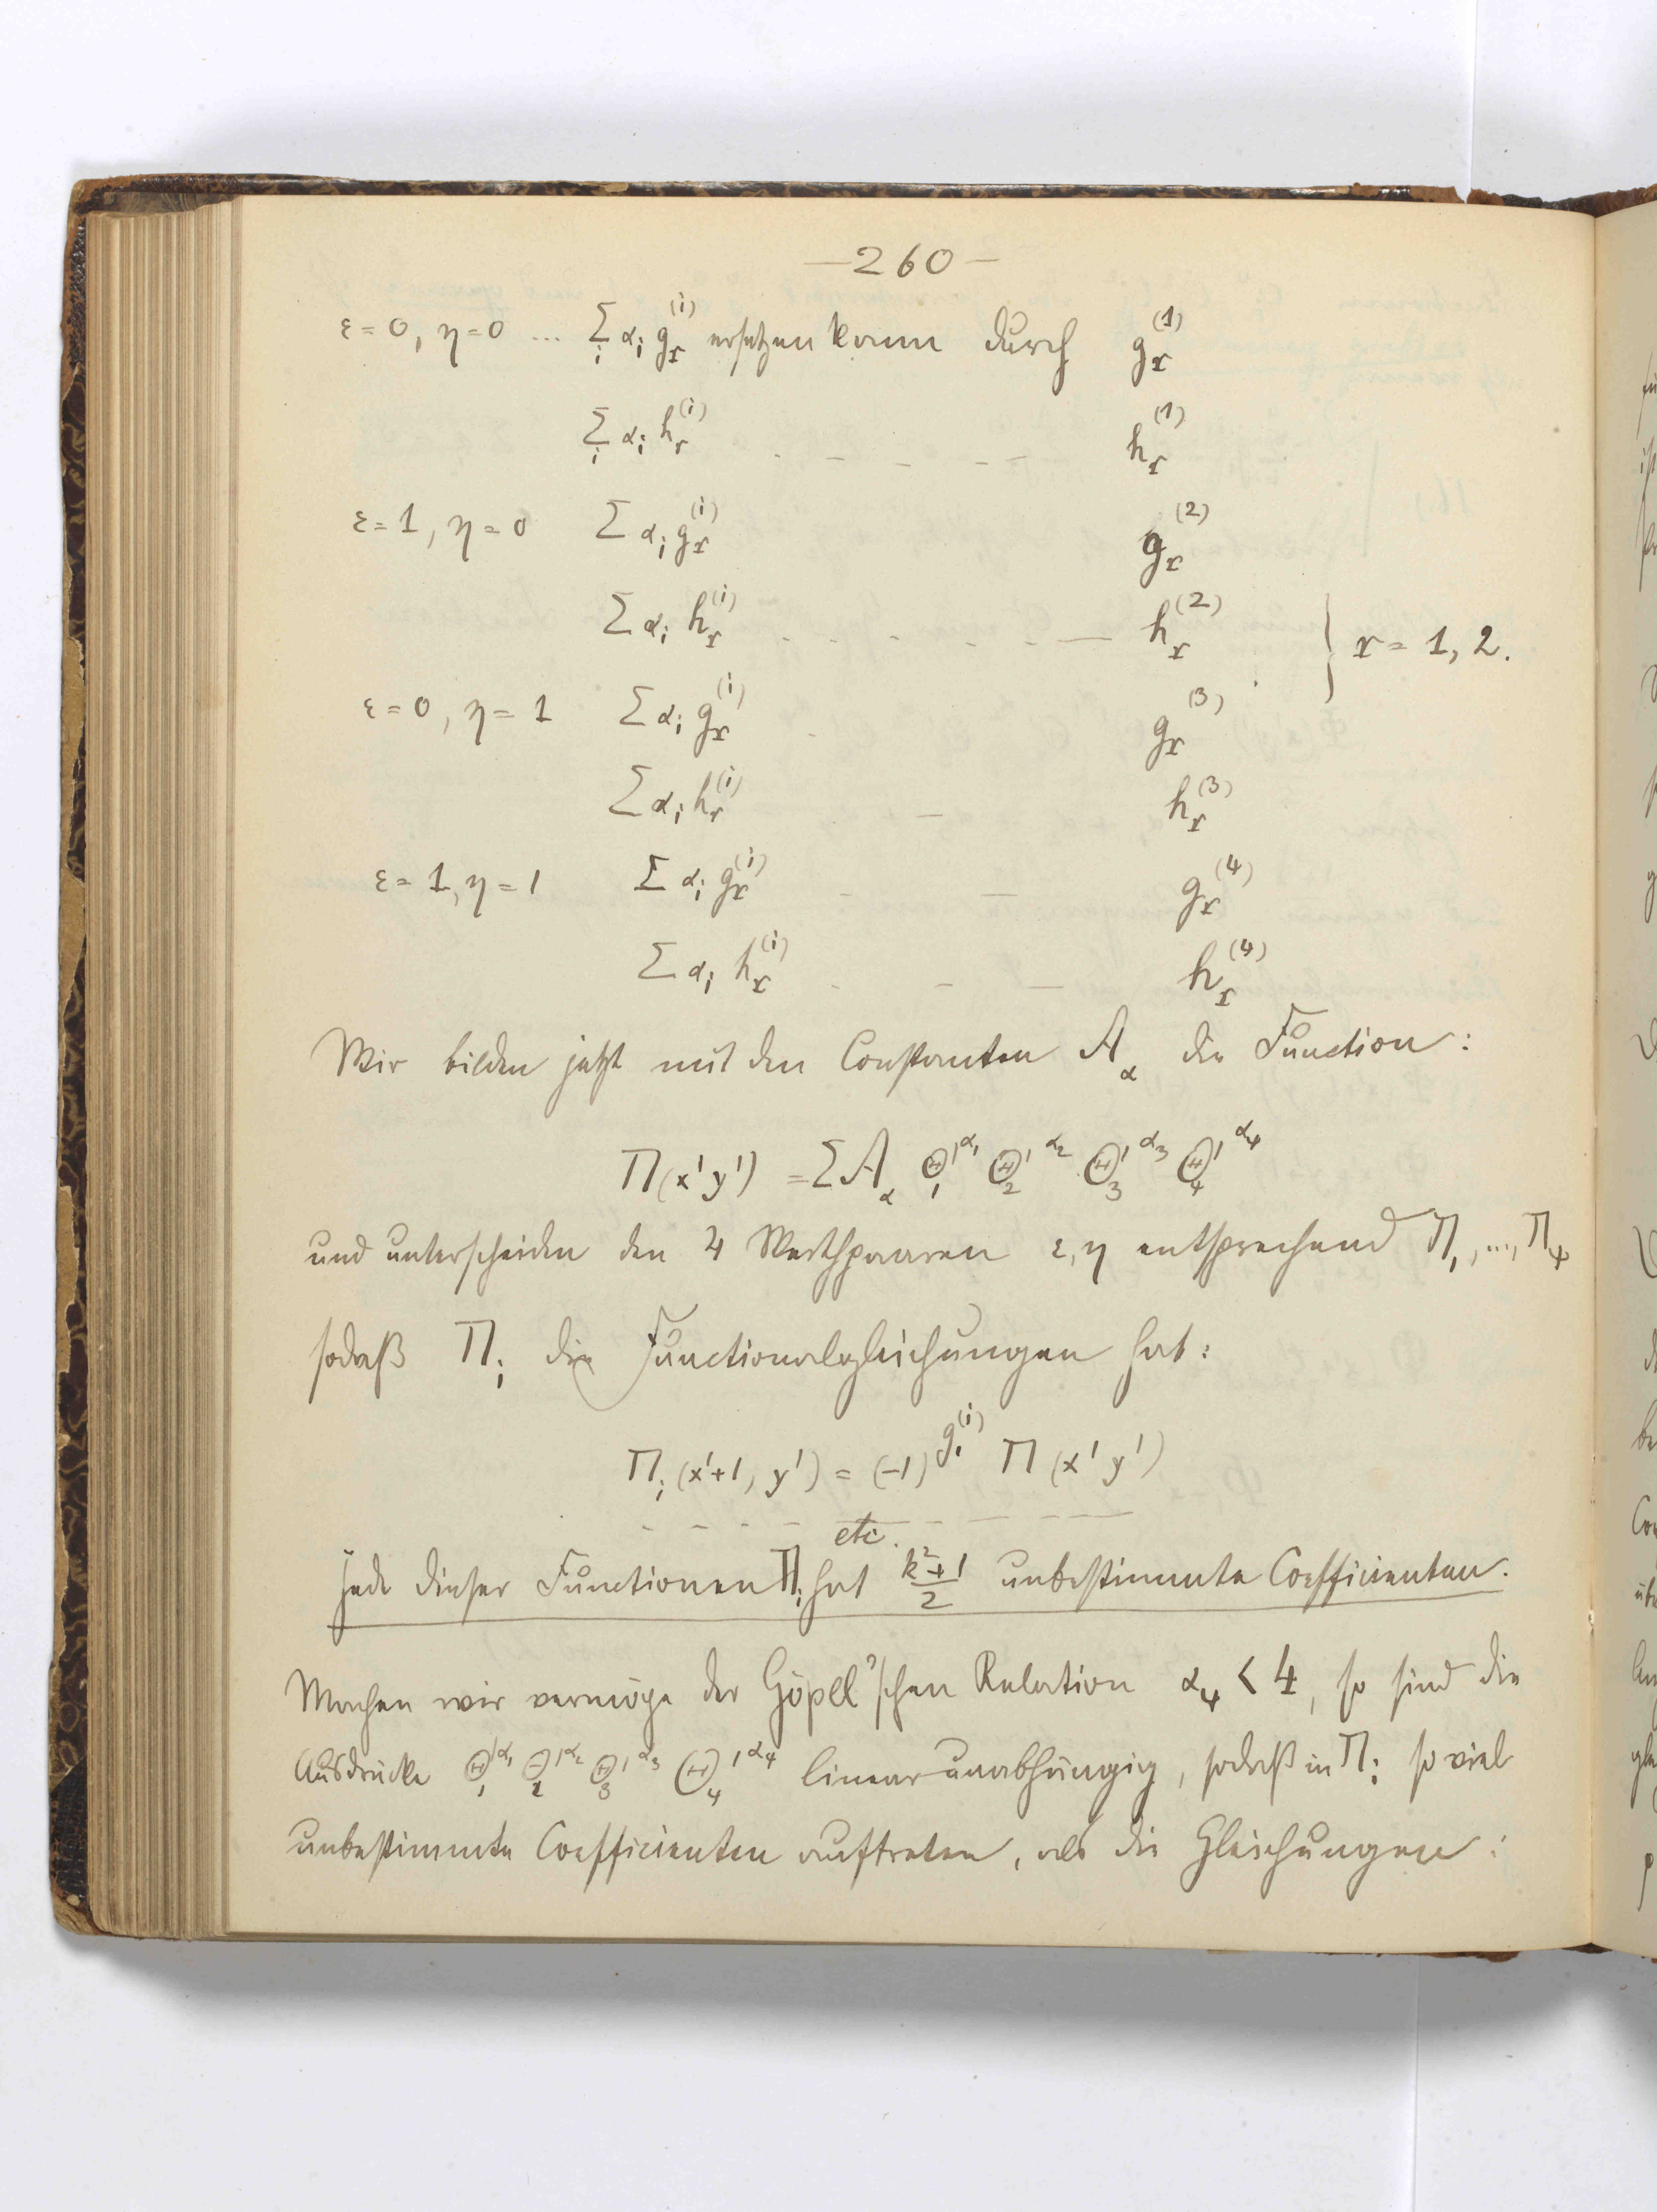 —260—
ε=0, η=0 ... Σ_i α_i g_r^(i) ersetzen kann durch g_r^(1)
Σ_i α_i h_r^(i) . – – – – – h_r^(1)
ε=1, η=0 Σ α_i g_r^(i) g_r^(2)
Σ α_i h_r^(i) . – . – . – . — h_r^(2) } r = 1, 2.
ε=0, η=1 Σ α_i g_r^(i) . g_r^(3)
Σ α_i h_r^(i) – h_r^(3)
ε=1, η=1 Σ α_i g_r^(i) – – g_r^(4)
Σ α_i h_r^(i) . – — h_r^(4)
Wir bilden jetzt mit den Constanten A_α die Function:
Π(x'y') = Σ A_α Θ_1'^α_1 Θ_2'^α_2 Θ_3'^α_3 Θ_4'^α_4
und unterscheiden den 4 Werthpaaren ε, η entsprechend Π_1, ..., Π_4
sodaß Π_i die Functionalgleichungen hat:
Π_i(x'+1, y') = (-1)^{g_1^(i)} Π(x'y')
– – – – etc. – – – —
Jede dieser Functionen Π_i hat (k²+1)/2 unbestimmte Coefficienten.
Machen wir vermöge der Göpel'schen Relation α_4 < 4, so sind die
Ausdrücke Θ_1'^α_1 Θ_2'^α_2 Θ_3'^α_3 Θ_4'^α_4 linear unabhängig, sodaß in Π_i so viel
unbestimmte Coefficienten auftreten, als die Gleichungen: